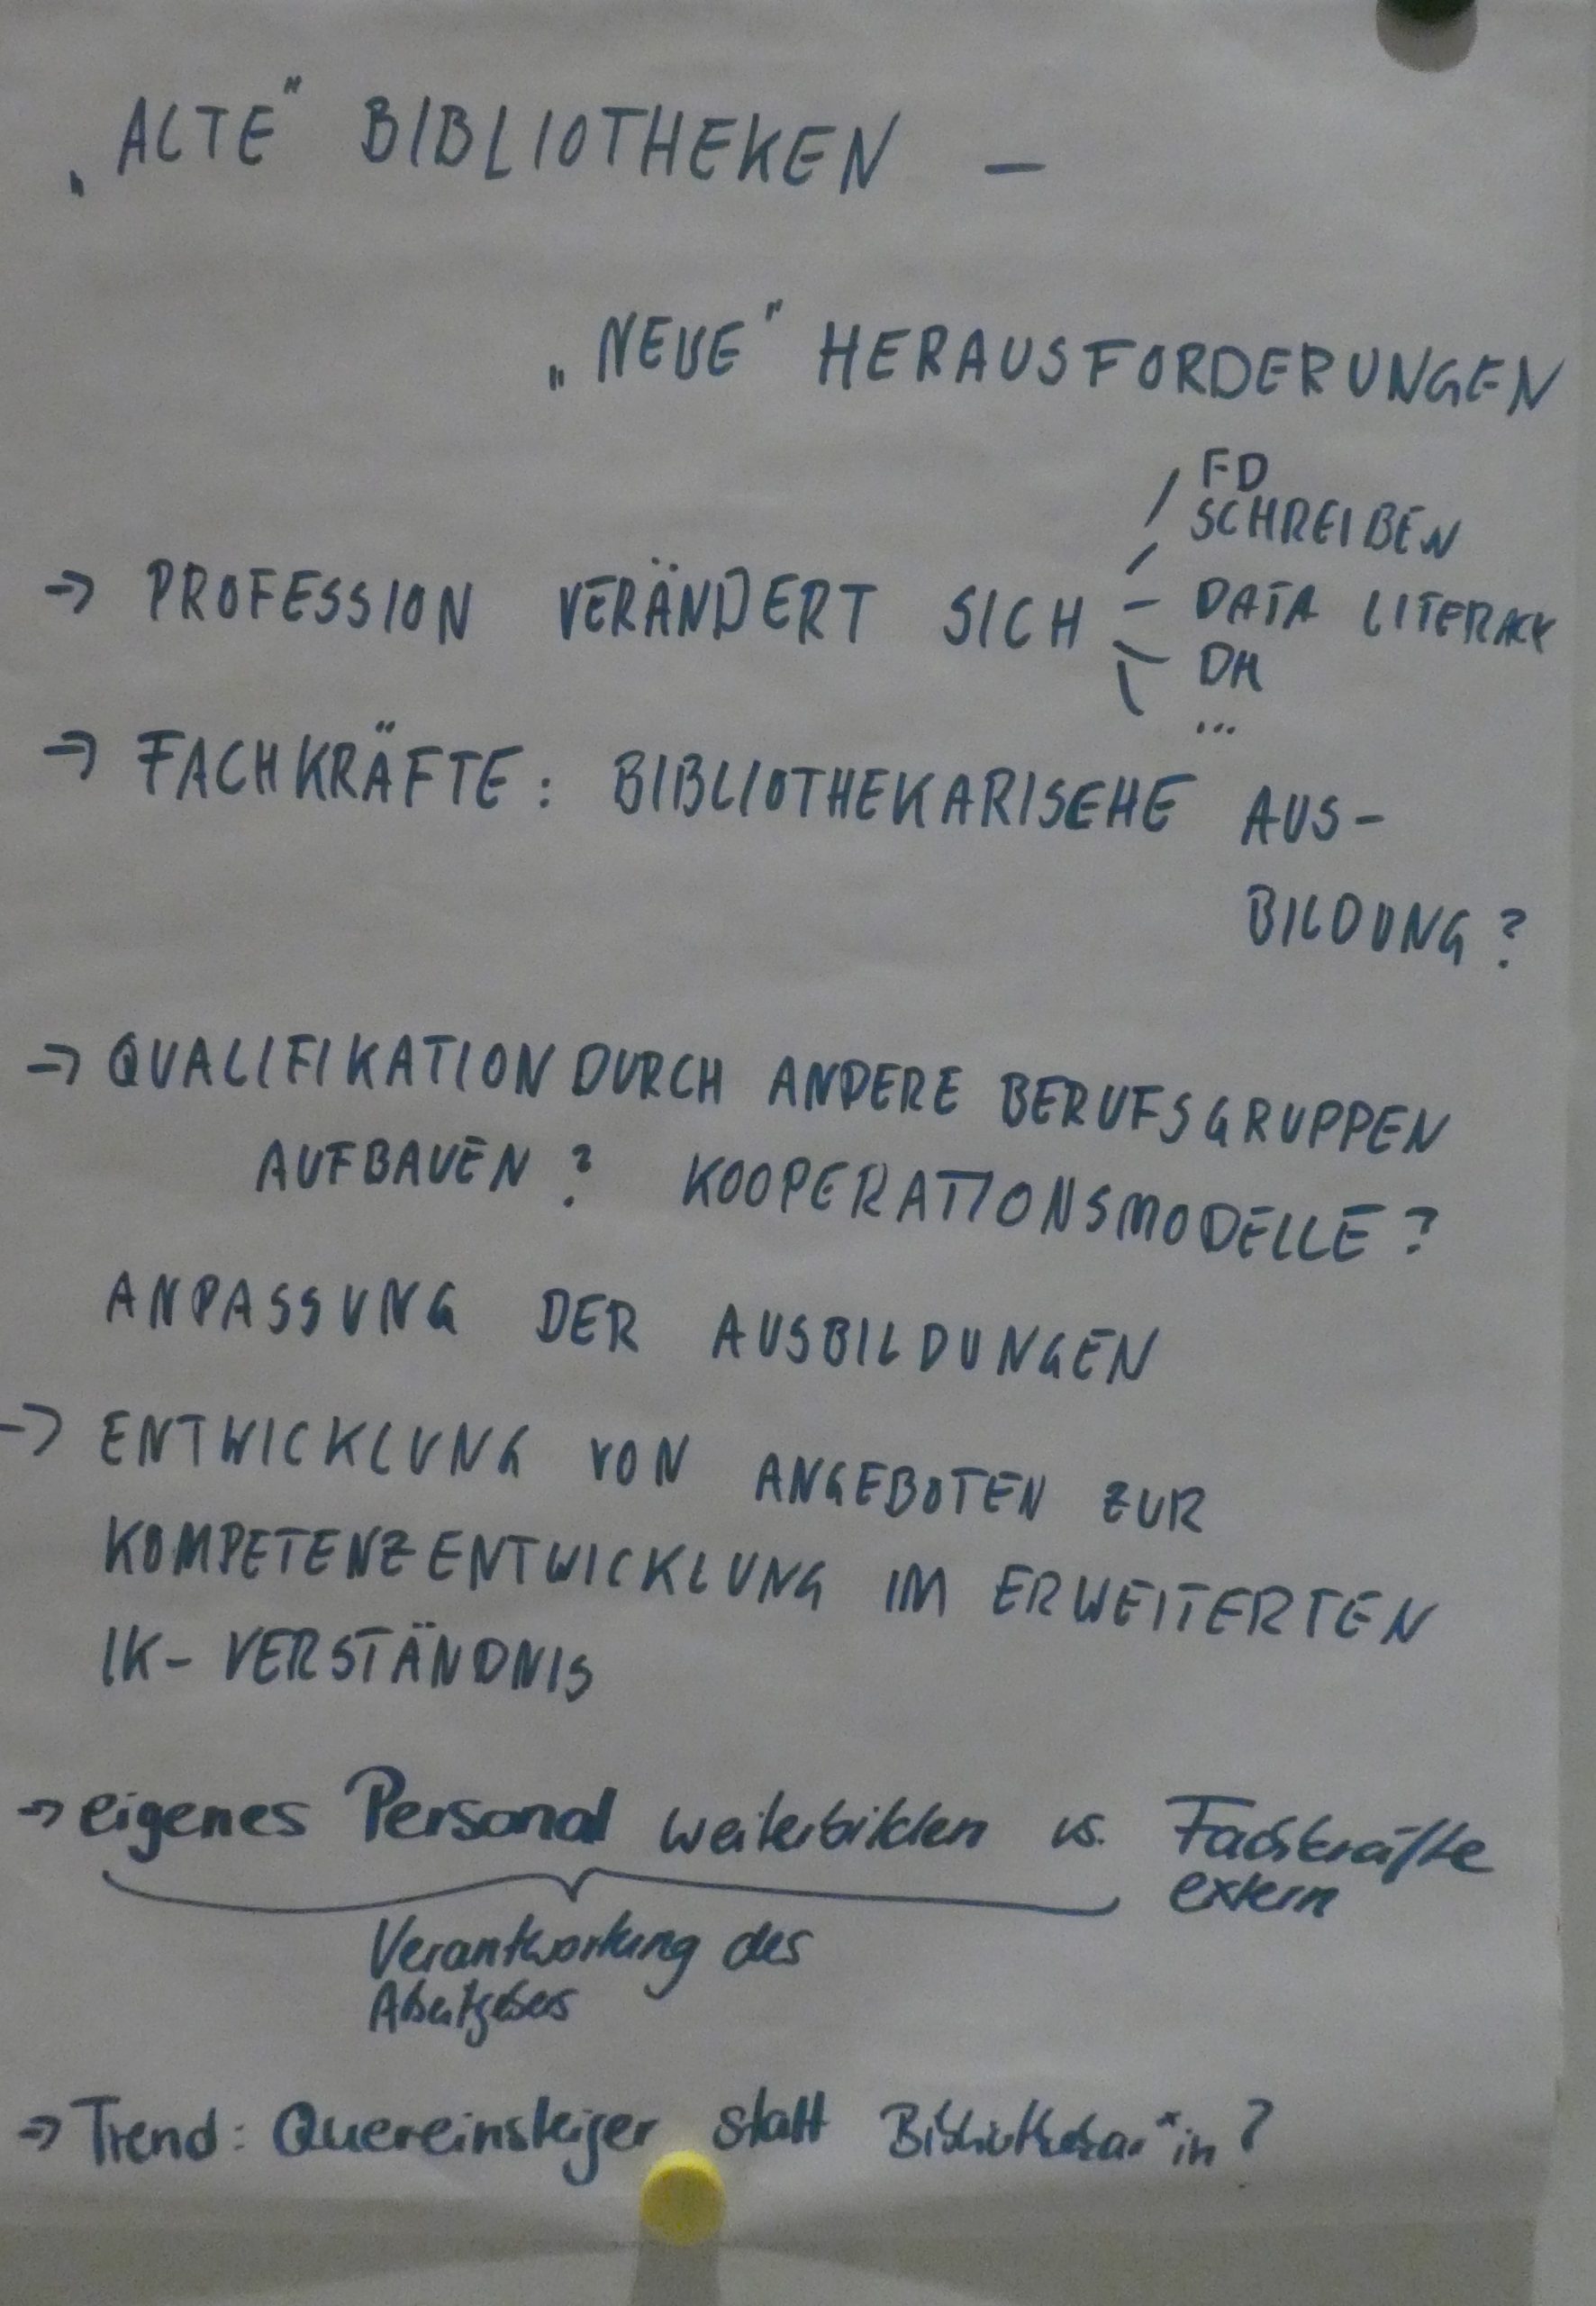 „ALTE" BIBLIOTHEKEN –
„NEUE" HERAUSFORDERUNGEN
FD
SCHREIBEN
→ PROFESSION VERÄNDERT SICH – DATA LITERACY
DH
...
→ FACHKRÄFTE: BIBLIOTHEKARISCHE AUS-
BILDUNG?
→ QUALIFIKATION DURCH ANDERE BERUFSGRUPPEN
AUFBAUEN? KOOPERATIONSMODELLE?
ANPASSUNG DER AUSBILDUNGEN
→ ENTWICKLUNG VON ANGEBOTEN ZUR
KOMPETENZENTWICKLUNG IM ERWEITERTEN
IK-VERSTÄNDNIS
→ eigenes Personal weiterbilden vs. Fachkräfte
extern
Verantwortung des
Arbeitgebers
→ Trend: Quereinsteiger statt Bibliothekar*in?